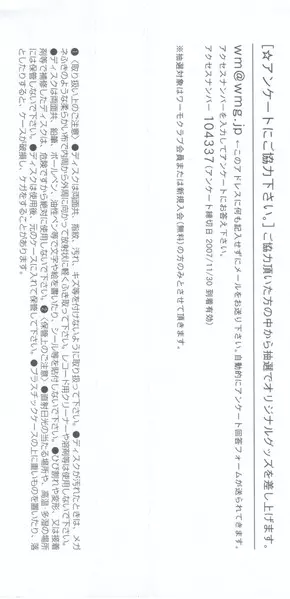 [☆アンケートにご協力下さい。]ご協力頂いた方の中から抽選でオリジナルグッズを差し上げます。
wm@wmg.jp ←このアドレスに何も記入せずにメールをお送り下さい。自動的にアンケート回答フォームが送られてきます。
アクセスナンバーを入力してアンケートにお答え下さい。
アクセスナンバー 104337（アンケート締切日 2007/11/30 到着有効）
※抽選対象はワーモクラブ会員または新規入会（無料）の方のみとさせて頂きます。
❶〈取り扱い上のご注意〉●ディスクは両面共、指紋、汚れ、キズ等を付けないように取り扱って下さい。●ディスクが汚れたときは、メガ
ネふきのような柔らかい布で内周から外周に向かって放射状に軽くふき取って下さい。レコード用クリーナーや溶剤等は使用しないで下さい。
●ディスクは両面共、鉛筆、ボールペン、油性ペン等で文字や絵を書いたり、シール等を貼付しないで下さい。●ひび割れや変形、又は接着
剤等で補修したディスクは、危険ですから絶対に使用しないで下さい。❷〈保管上のご注意〉●直射日光の当たる場所や、高温・多湿の場所
には保管しないで下さい。●ディスクは使用後、元のケースに入れて保管して下さい。●プラスチックケースの上に重いものを置いたり、落
としたりすると、ケースが破損し、ケガをすることがあります。